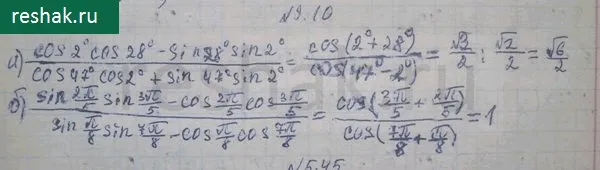 reshak.ru
№9.10
а) (cos 2° cos 28° - sin 28° sin 2°)/(cos 47° cos 2° + sin 47° sin 2°) = cos(2° + 28°)/cos(47° - 2°) = √3/2 : √2/2 = √6/2
б) (sin 2π/5 sin 3π/5 - cos 2π/5 cos 3π/5)/(sin π/8 sin 7π/8 - cos π/8 cos 7π/8) = cos(3π/5 + 2π/5)/cos(7π/8 + π/8) = 1
№5.45